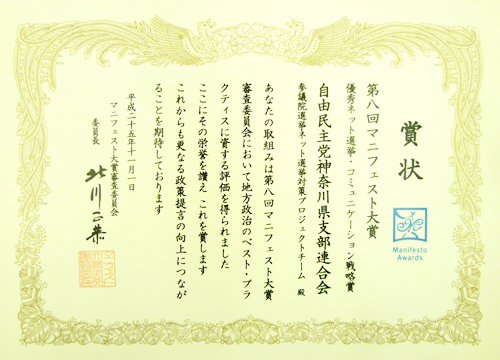 賞状
第八回マニフェスト大賞
優秀ネット選挙・コミュニケーション戦略賞
自由民主党神奈川県支部連合会
参議院選挙ネット選挙対策プロジェクトチーム 殿
あなたの取組みは第八回マニフェスト大賞
審査委員会において地方政治のベスト・プラ
クティスに資する評価を得られました
ここにその栄誉を讃え これを賞します
これからも更なる政策提言の向上につなが
ることを期待しております
平成二十五年十一月一日
マニフェスト大賞審査委員会
委員長
北川正恭
Manifesto
Awards